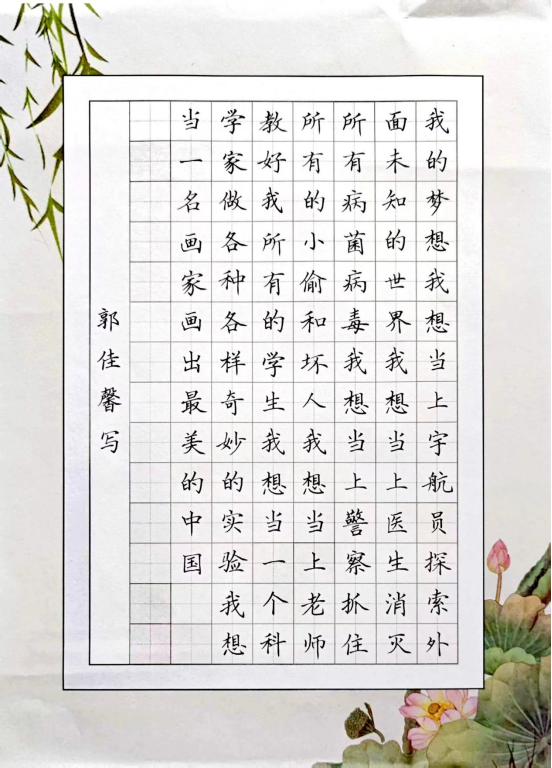 我的梦想我想当上宇航员探索外
面未知的世界我想当上医生消灭
所有病菌病毒我想当上警察抓住
所有的小偷和坏人我想当上老师
教好我所有的学生我想当一个科
学家做各种各样奇妙的实验我想
当一名画家画出最美的中国
郭佳馨写